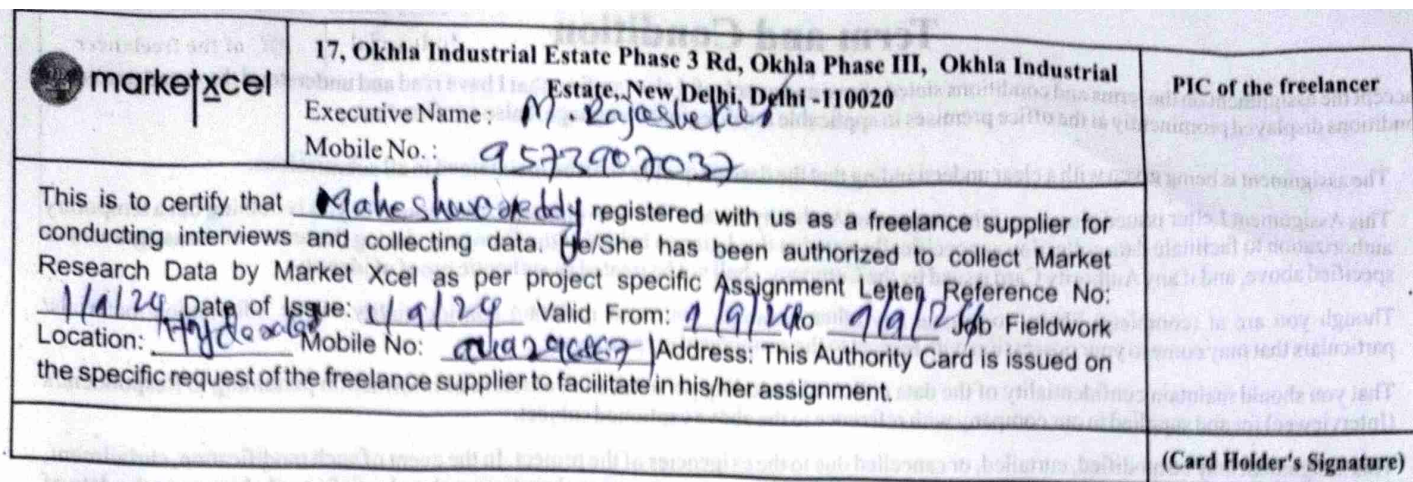 Term and Condition
market xcel
17, Okhla Industrial Estate Phase 3 Rd, Okhla Phase III, Okhla Industrial
Estate, New Delhi, Delhi -110020
Executive Name : M. Rajashekar
Mobile No. : 9573907037
PIC of the freelancer
This is to certify that Maheshwar Reddy registered with us as a freelance supplier for
conducting interviews and collecting data. He/She has been authorized to collect Market
Research Data by Market Xcel as per project specific Assignment Letter Reference No:
Date of Issue: 1/9/24 Valid From: 1/9/24 to Job Fieldwork
Location: Hyderabad Mobile No: Address: This Authority Card is issued on
the specific request of the freelance supplier to facilitate in his/her assignment.
(Card Holder's Signature)